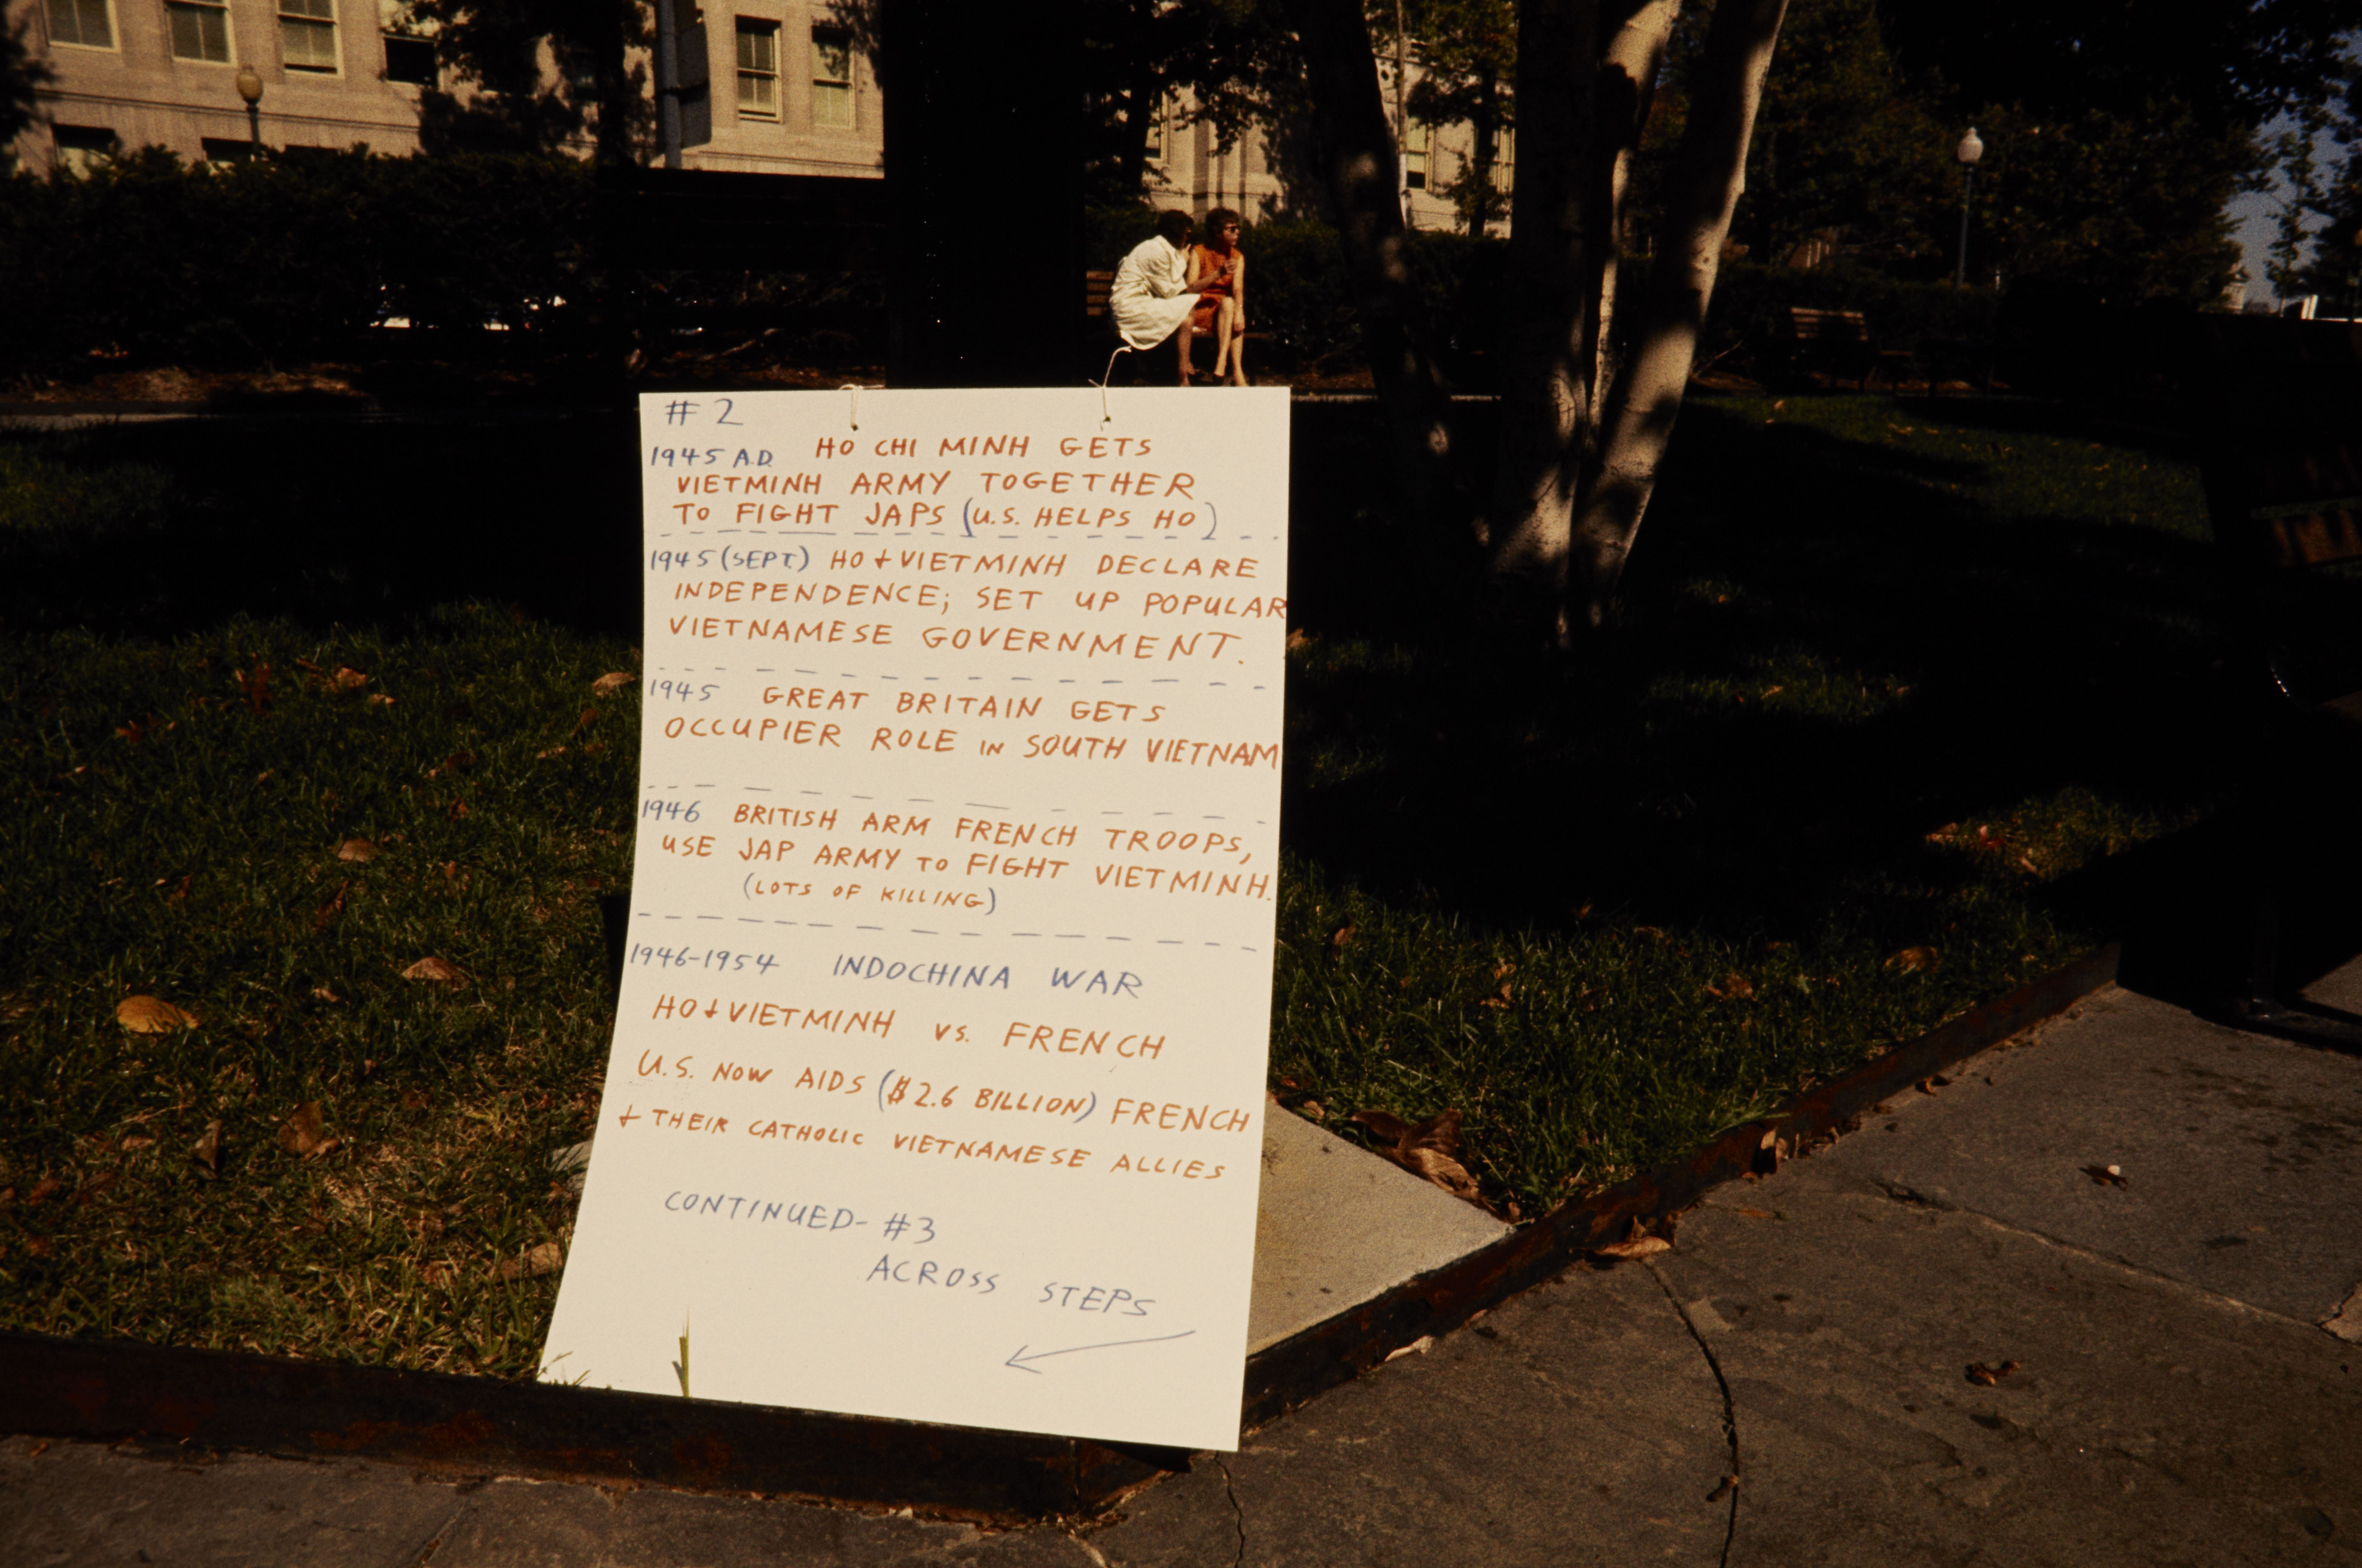 # 2
1945 A.D. HO CHI MINH GETS
VIETMINH ARMY TOGETHER
TO FIGHT JAPS (U.S. HELPS HO)
1945 (SEPT.) HO + VIETMINH DECLARE
INDEPENDENCE; SET UP POPULAR
VIETNAMESE GOVERNMENT.
1945 GREAT BRITAIN GETS
OCCUPIER ROLE IN SOUTH VIETNAM
1946 BRITISH ARM FRENCH TROOPS,
USE JAP ARMY TO FIGHT VIETMINH.
(LOTS OF KILLING)
1946-1954 INDOCHINA WAR
HO + VIETMINH VS. FRENCH
U.S. NOW AIDS ($2.6 BILLION) FRENCH
+ THEIR CATHOLIC VIETNAMESE ALLIES
CONTINUED- #3
ACROSS STEPS